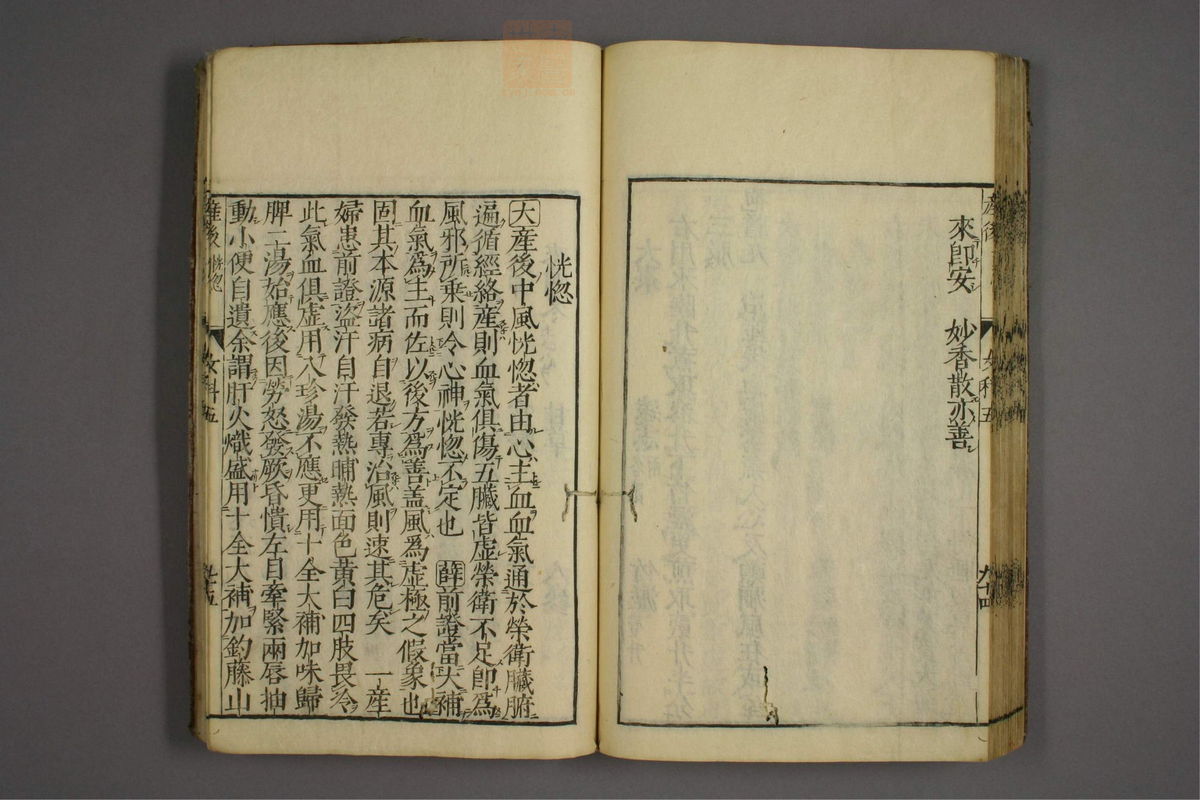 來即安　妙香散亦善
恍惚
大產後中風恍惚者由心主血血氣通於榮衛臟腑
遍循經絡產則血氣俱傷五臟皆虛榮衛不足即爲
風邪所乘則令心神恍惚不定也　薛前證當大補
血氣爲主而佐以後方爲善蓋風爲虛極之假象也
固其本源諸病自退若專治風則速其危矣　一產
婦患前證盜汗自汗發熱晡熱面色黃白四肢畏冷
此氣血俱虛用八珍湯不應更用十全大補加味歸
脾二湯始應後因勞怒發厥昏憒左目牽緊兩唇抽
動小便自遺余謂肝火熾盛用十全大補加鈎藤山
產後　恍惚　女科五